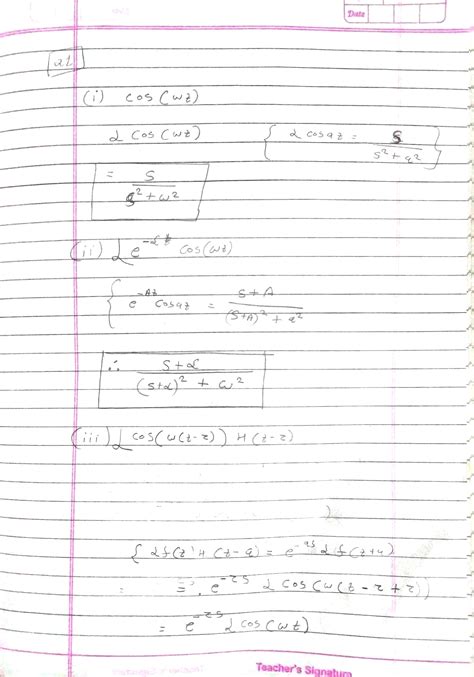 Date
Q1
(i) cos(wt)
L cos(wt) { L cosat = s / s² + a² }
= s / s² + w²
(ii) L e^-αt cos(wt)
{ e^-At cosat = s+A / (s+A)² + a²
∴ s+α / (s+α)² + w²
(iii) L cos(w(t-τ)) H(t-τ)
{ L f(t) H(t-a) = e^-as L f(t+a)
= e^-τs L cos(w(t-τ+τ))
= e^-τs L cos(wt)
Teacher's Signature